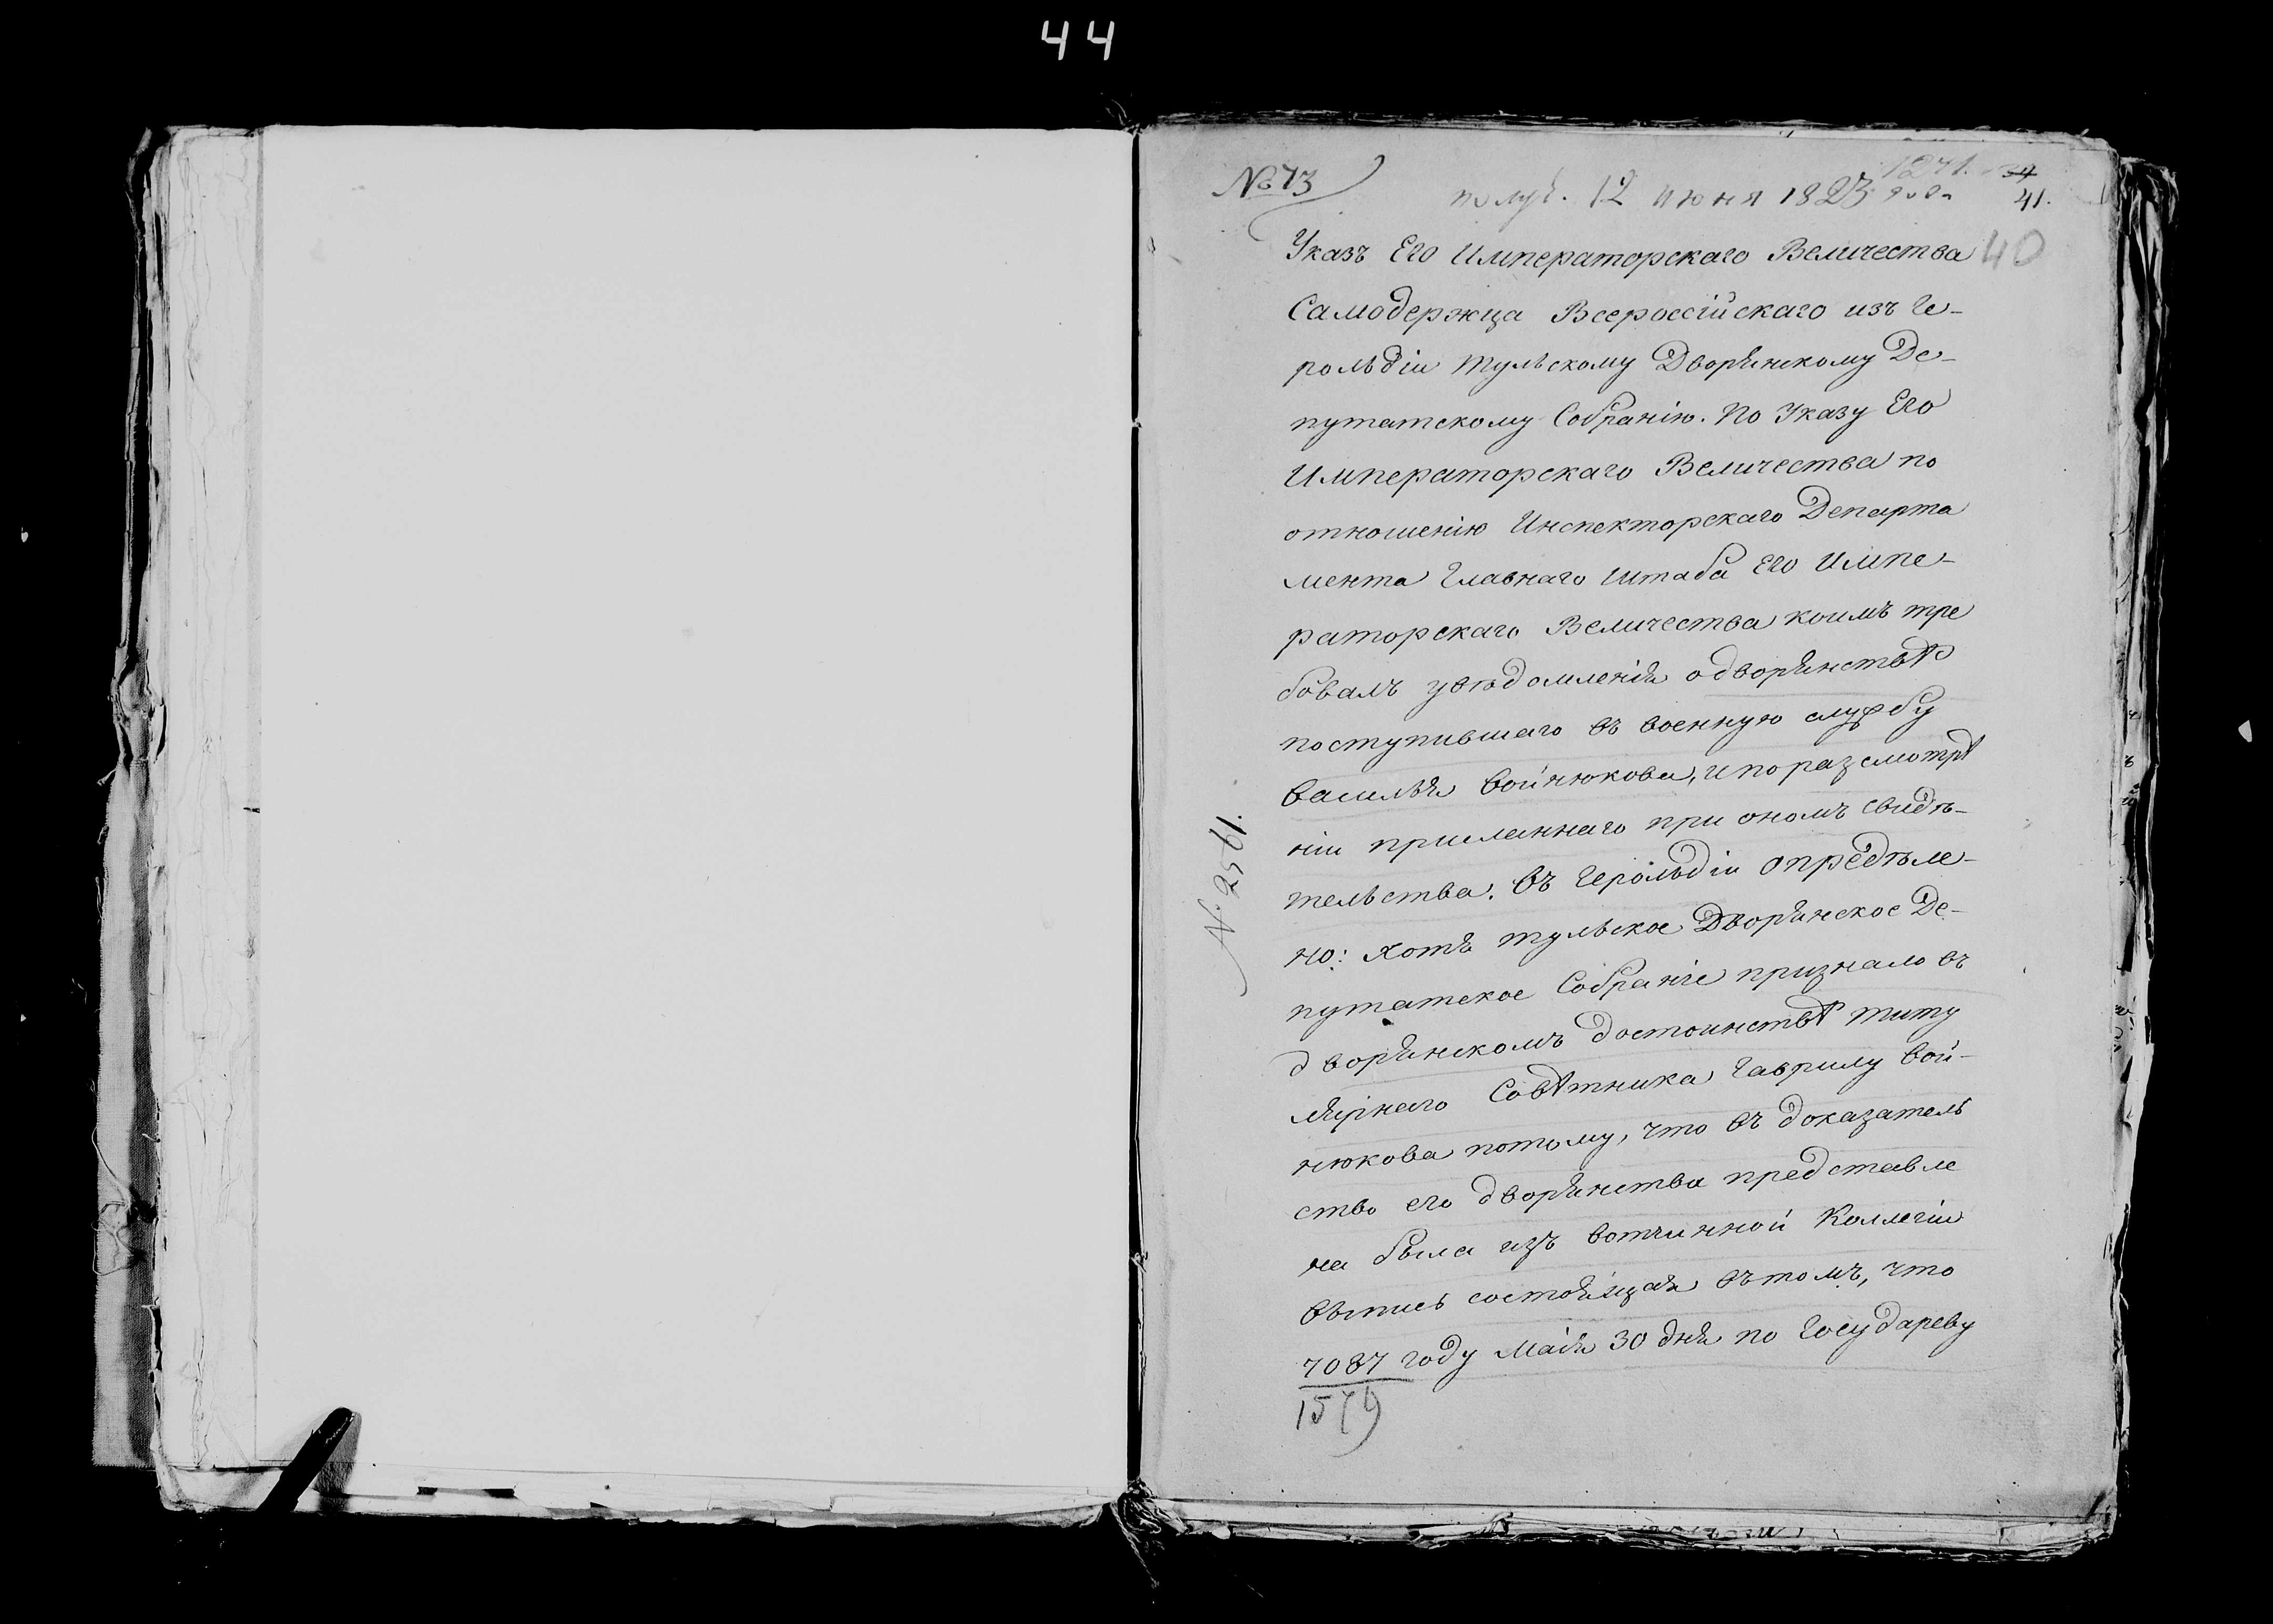 44
№ 73
1241. 34
получ. 12 июня 1823 года 41.
Указъ Его Императорскаго Величества 40
Самодержца Всероссійскаго изъ Ге-
рольдіи Тульскому Дворянскому Де-
путатскому Собранію. По Указу Его
Императорскаго Величества по
отношенію Инспекторскаго Департа
мента Главнаго Штаба Его Импе-
раторскаго Величества коимъ тре
бовалъ увѣдомленія одворянствѣ
поступившаго въ военную службу
Василья Войнюкова, и поразсмотрѣ
ніи присланнаго при ономъ свидѣ-
тельства. Въ Герольдіи опредѣле-
но: хотя Тульское Дворянское Де-
путатское Собраніе признало въ
дворянскомъ достоинствѣ титу
лярнаго Совѣтника Гаврилу Вой-
нюкова потому, что въ доказатель
ство его дворянства представле
на была изъ вотчинной Коллегіи
выпись состоящая вътомъ, что
7087 году Маія 30 дня по Государеву
1579
№ 2561.